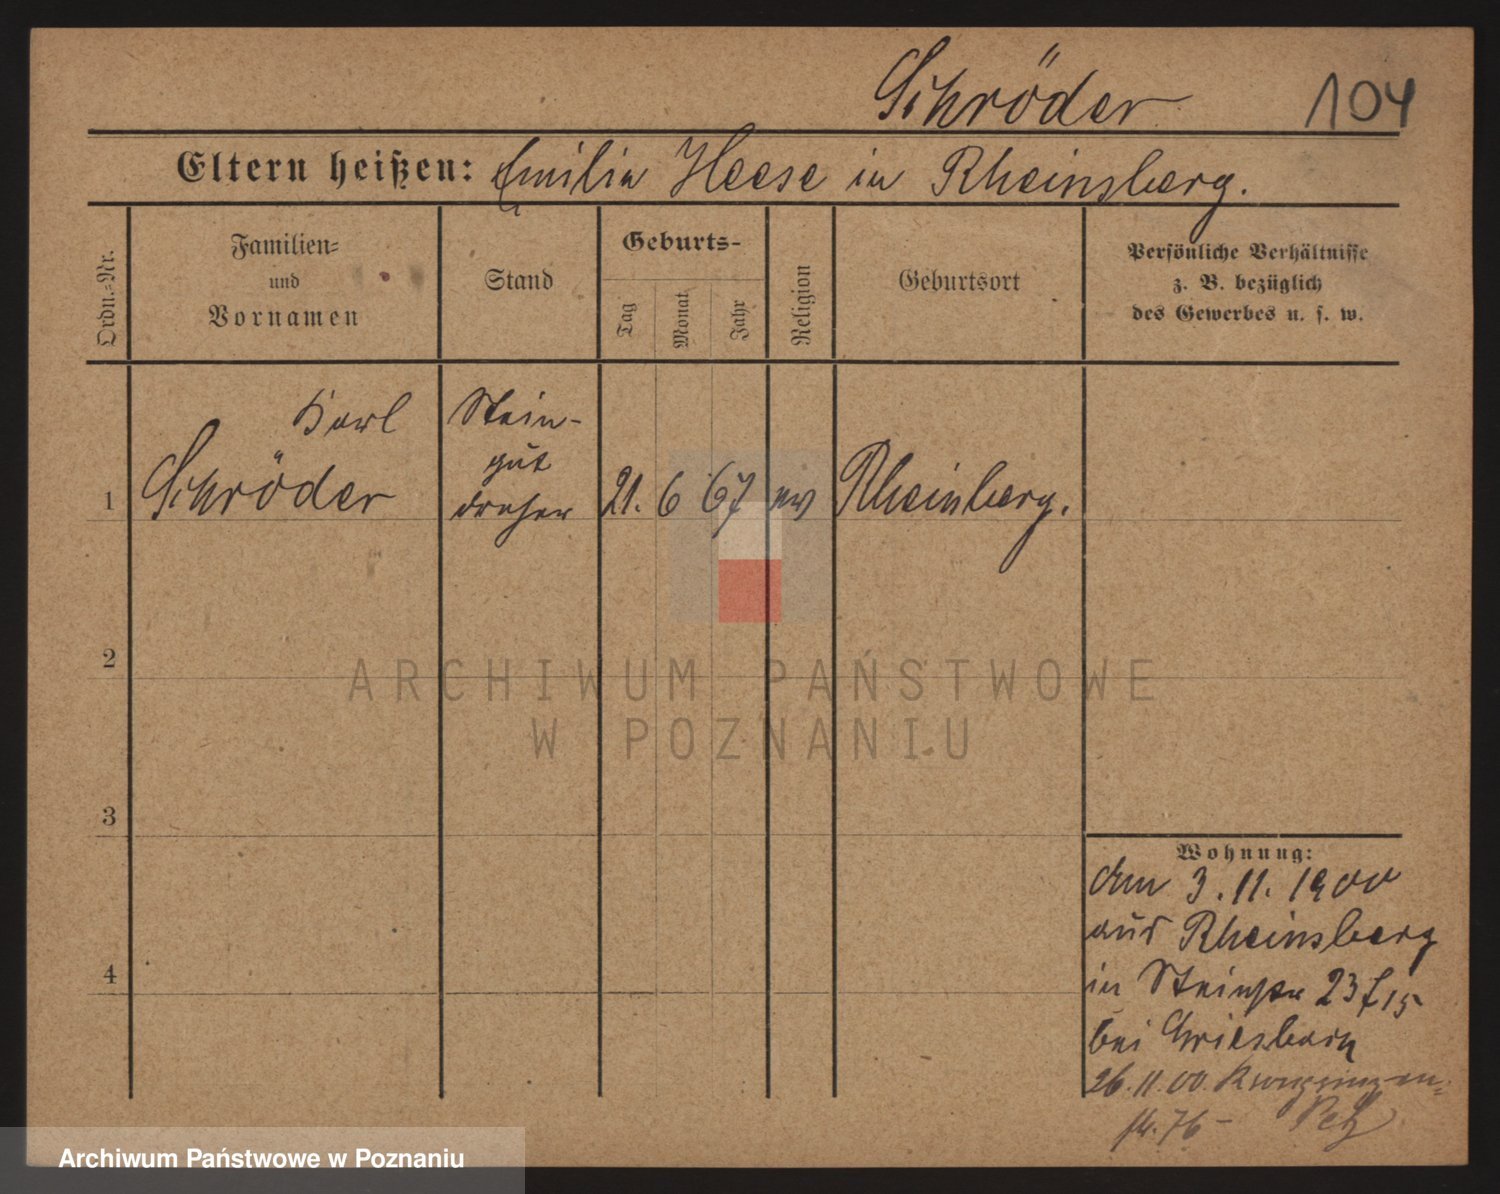 Schröder 104
Eltern heißen: Emilie Heese in Rheinsberg.
Ordn.=Nr.
Familien=
und
Vornamen
Stand
Geburts-
Tag
Monat
Jahr
Religion
Geburtsort
Persönliche Verhältnisse
z. B. bezüglich
des Gewerbes u. s. w.
Karl
Schröder
Stein-
gut
dreher
1
21. 6 67 ev Rheinsberg.
2
3
4
ARCHIWUM PAŃSTWOWE
W POZNANIU
Wohnung:
am 3.11.1900
aus Rheinsberg
in Steinstr 23
bei Griesbach
26.11.00.
76 -
Archiwum Państwowe w Poznaniu